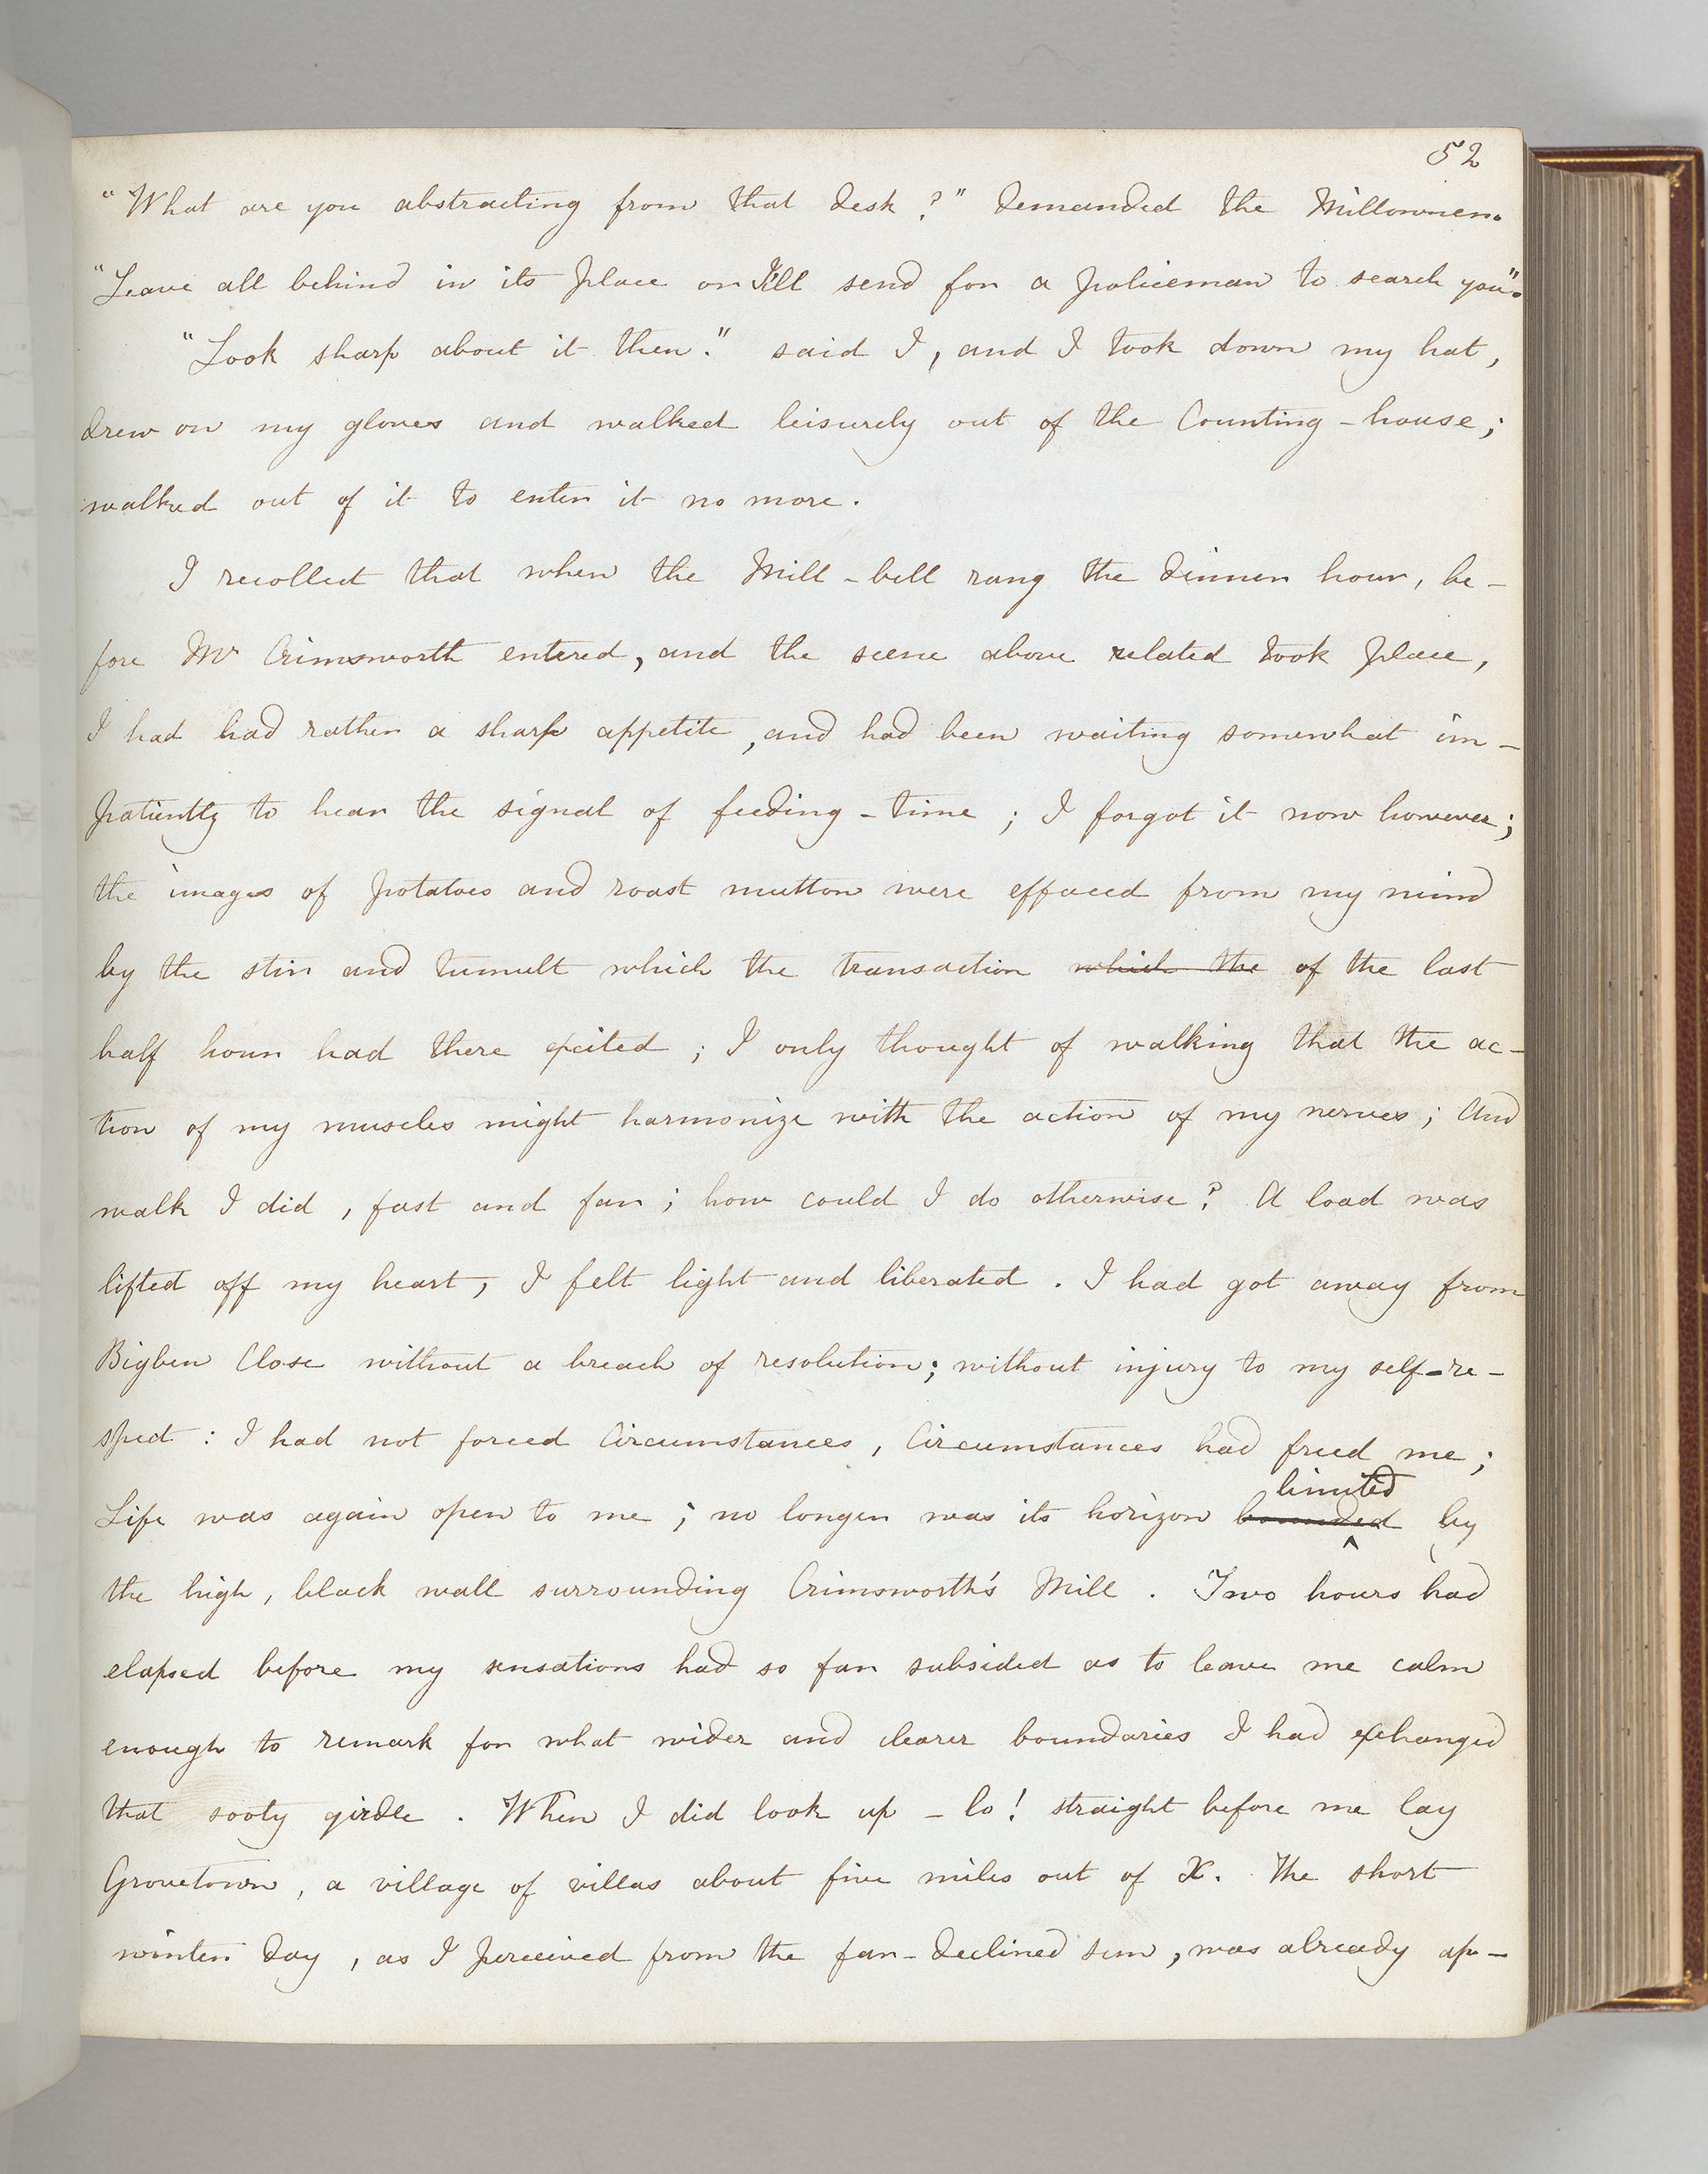 52
"What are you abstracting from that desk?" demanded the Millowner.
"Leave all behind in its place or I'll send for a policeman to search you".
"Look sharp about it then." said I, and I took down my hat,
drew on my gloves and walked leisurely out of the Counting-house;
walked out of it to enter it no more.
I recollect that when the Mill-bell rang the dinner hour, be-
fore Mr Crimsworth entered, and the scene above related took place,
I had had rather a sharp appetite, and had been waiting somewhat im-
patiently to hear the signal of feeding-time; I forgot it now however;
the images of potatoes and roast mutton were effaced from my mind
by the stir and tumult which the transaction which the of the last
half hour had there excited; I only thought of walking that the ac-
tion of my muscles might harmonize with the action of my nerves; And
walk I did, fast and far; how could I do otherwise? A load was
lifted off my heart, I felt light and liberated. I had got away from
Bigben Close without a breach of resolution; without injury to my self-re-
spect: I had not forced Circumstances, Circumstances had freed me;
limited
Life was again open to me; no longer was its horizon bounded by
the high, black wall surrounding Crimsworth's Mill. Two hours had
elapsed before my sensations had so far subsided as to leave me calm
enough to remark for what wider and clearer boundaries I had exchanged
that sooty girdle. When I did look up - lo! straight before me lay
Grovetown, a village of villas about five miles out of X. The short
winter day, as I perceived from the far-declined sun, was already ap-